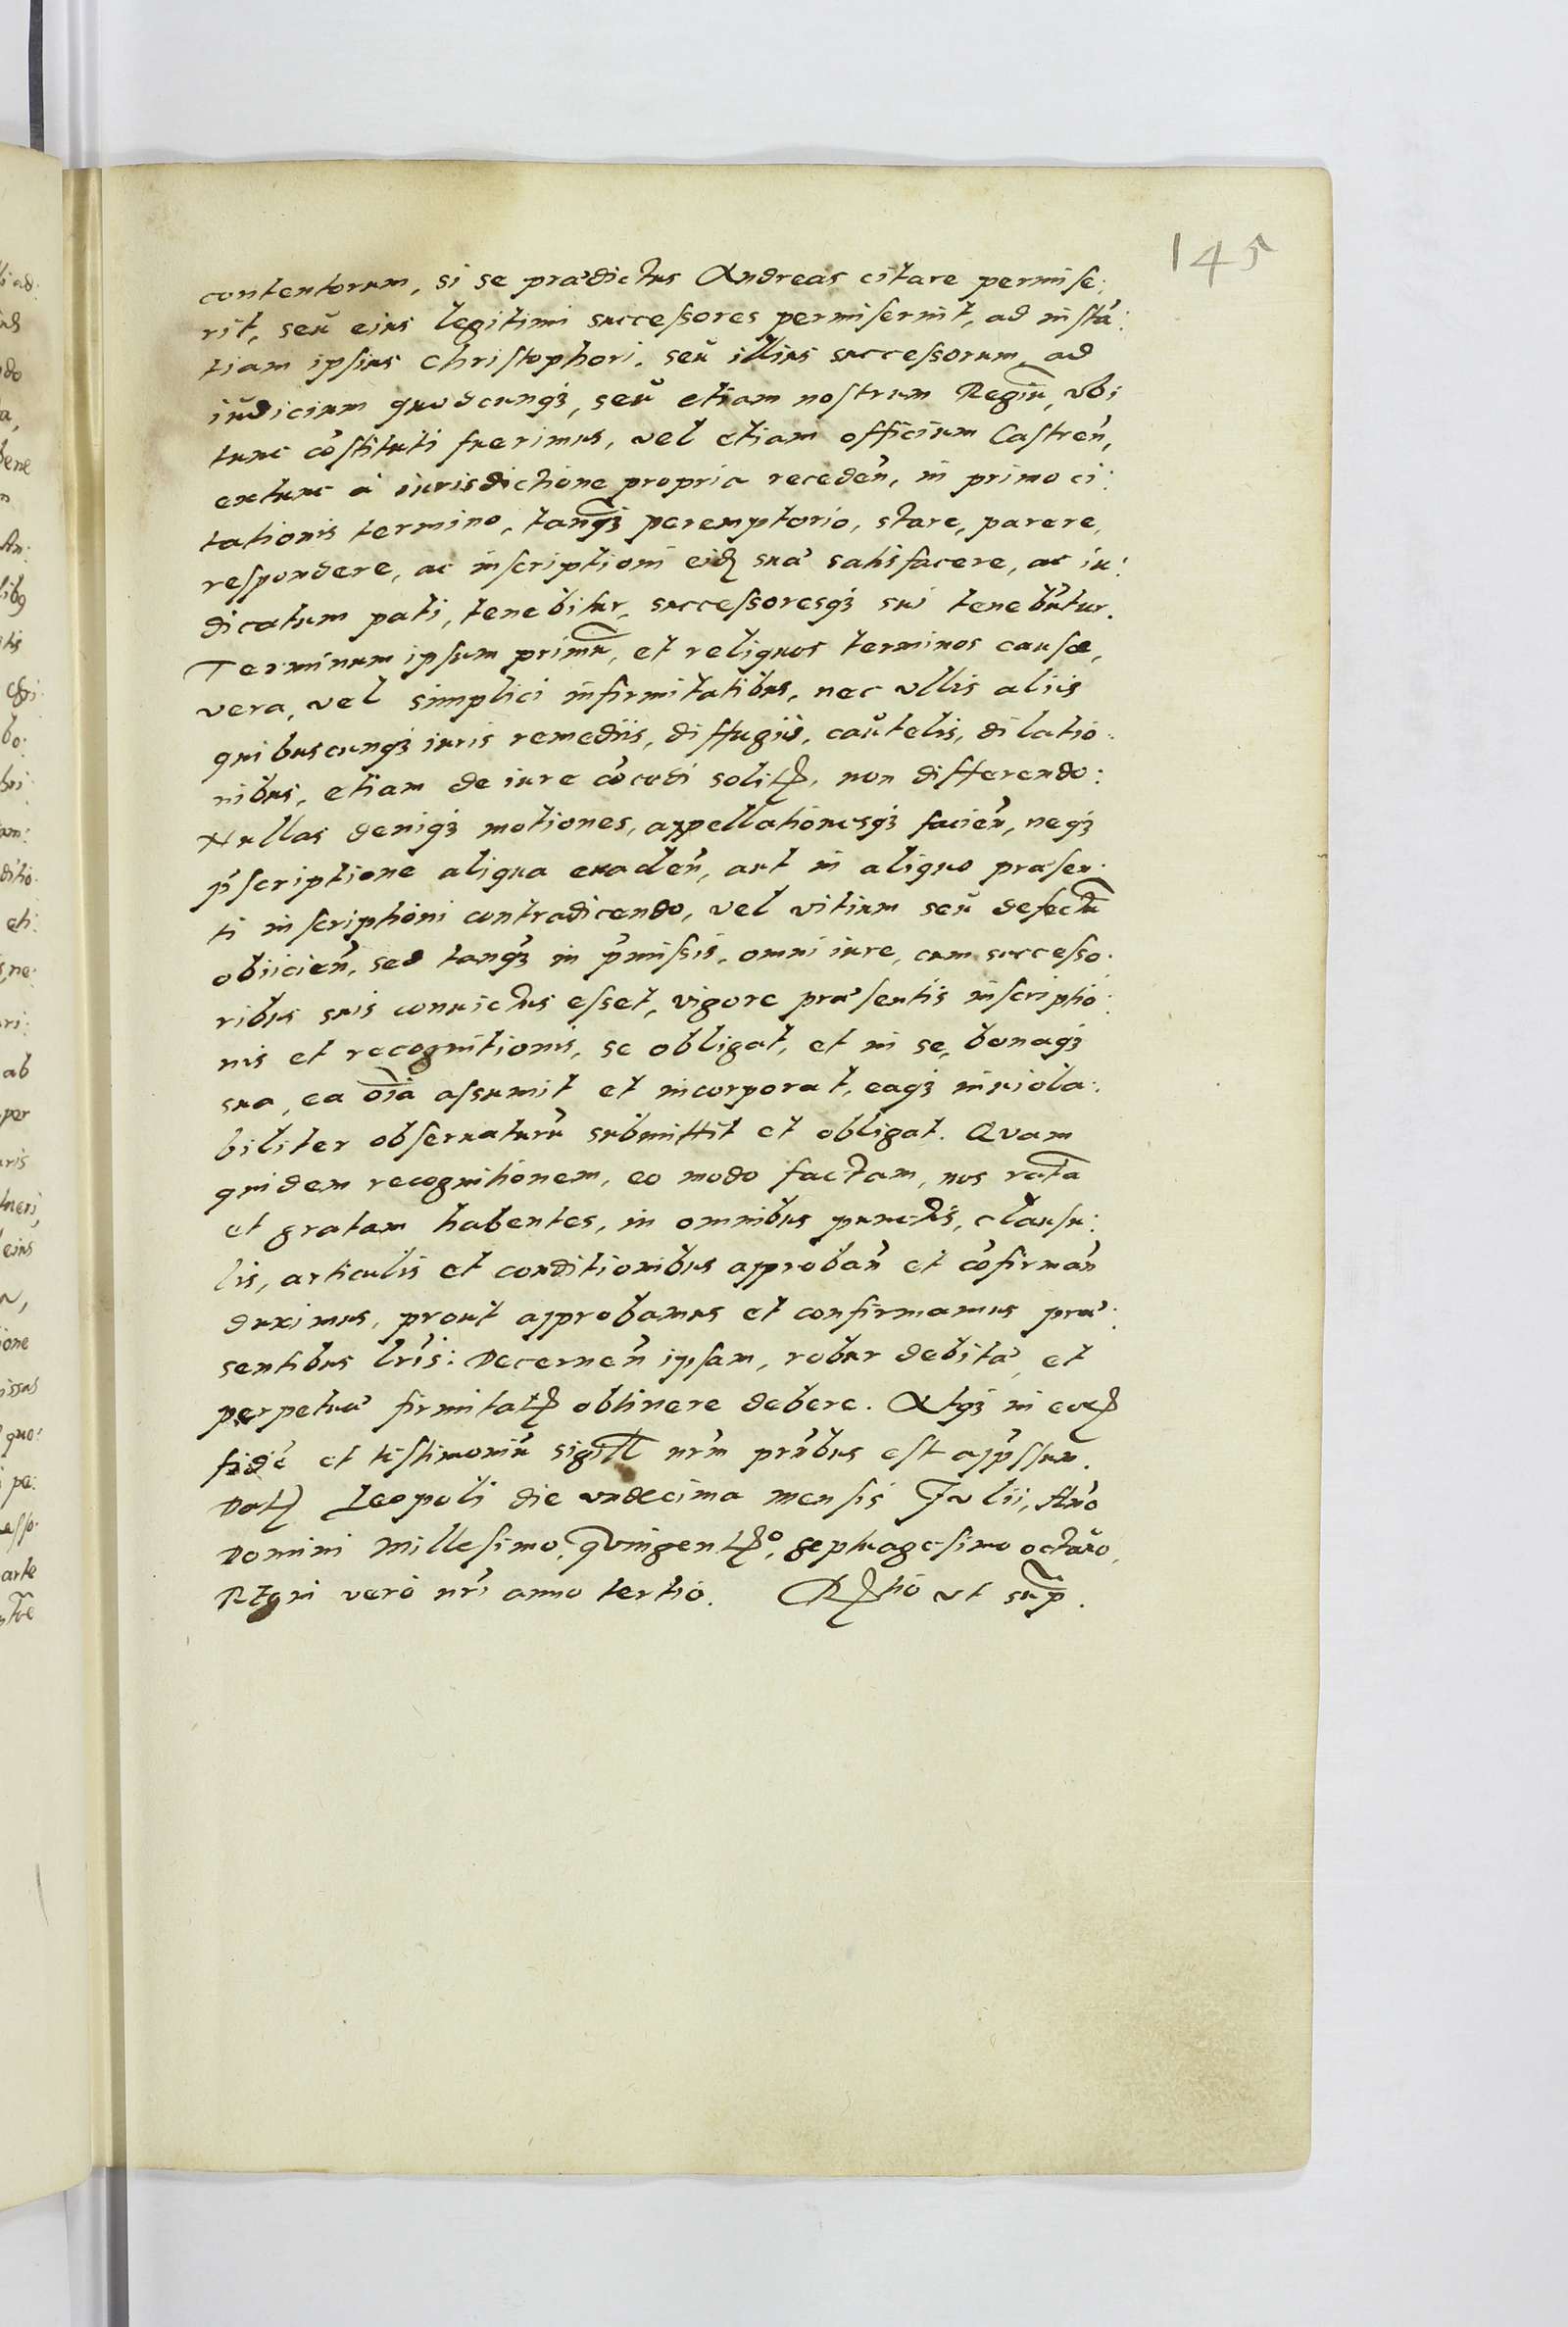 145
contentorum, si se prædictus Andreas citare permise:
rit, seu eius legitimi successores permiserint, ad instā:
tiam ipsius Christophori, seu illius successorum, ad
iudicium quodcunq3, seu etiam nostrum Regiū, vbi
tunc cōstituti fuerimus, vel etiam officium Castreñ,
extunc à iurisdictione propria recedeñ, in primo ci:
tationis termino, tanq3 peremptorio, stare, parere,
respondere, ac inscriptioni eid suæ satisfacere, ac iu:
dicatum pati, tenebitur, successoresq3 sui tenebūtur.
Terminum ipsum primū, et reliquos terminos causæ,
vera, vel simplici infirmitatibus, nec vllis aliis
quibuscunq3 iuris remediis, diffugiis, cautelis, dilatio:
nibus, etiam de iure cōcedi solit, non differendo:
Nullas deniq3 motiones, appellationesq3 facieñ, neq3
p̄scriptione aliqua euadeñ, aut in aliquo præsen:
ti inscriptioni contradicendo, vel vitium seu defectū
obiicieñ, sed tanq3 in p̄missis, omni iure, cum successo:
ribus suis conuictus esset, vigore præsentis inscriptio:
nis et recognitionis, se obligat, et in se, bonaq3
sua, ea oīa assumit et incorporat, eaq3 inuiola:
biliter obseruaturū submittit et obligat. Quam
quidem recognitionem, eo modo factam, nos ratā
et gratam habentes, in omnibus punctis, clausu:
lis, articulis et conditionibus approbañ et cōfirmañ
duximus, prout approbamus et confirmamus præ:
sentibus lr̄is: Decerneñ ipsam, robur debitæ, et
perpetuæ firmitat obtinere debere. Atq3 in eor
fidē et testimoniū sigill nr̄m pn̄tibus est app̄ssum.
Dat Leopoli die vndecima mensis Iulii, Año
Domini Millesimo, Quingent°, septuagesimo octauo,
Regni verò nr̄i anno tertio. R tio vt sup.